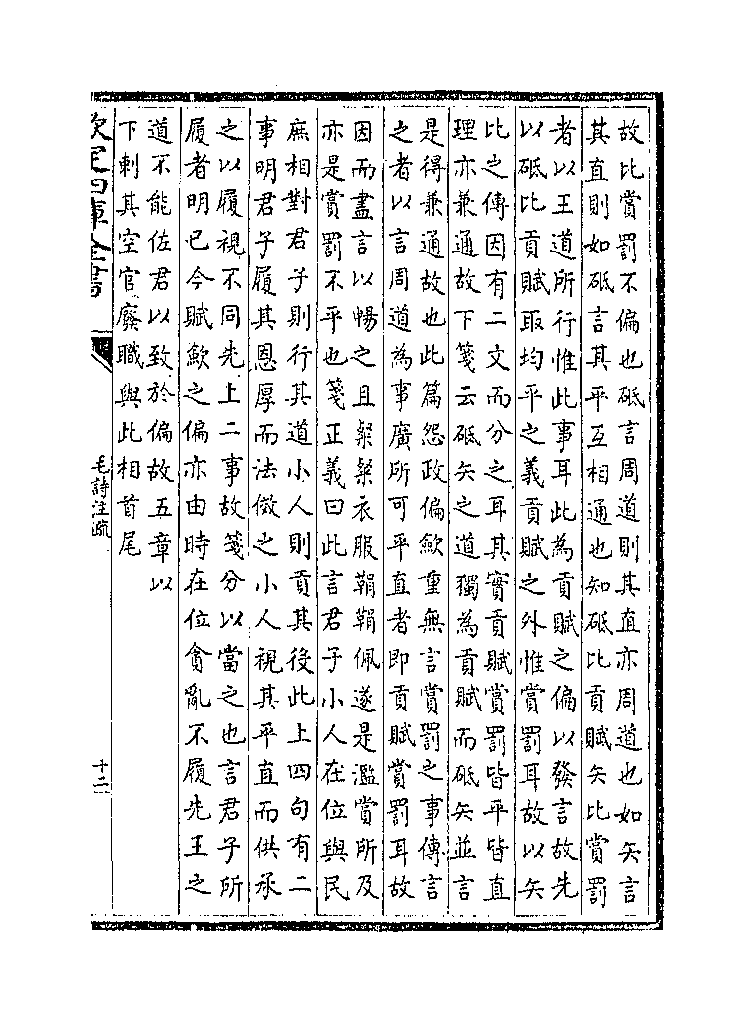 故比賞罰不偏也砥言周道則其直亦周道也如矢言
其直則如砥言其平互相通也知砥比貢賦矢比賞罰
者以王道所行惟此事耳此為貢賦之偏以發言故先
以砥比貢賦取均平之義貢賦之外惟賞罰耳故以矢
比之傳因有二文而分之耳其實貢賦賞罰皆平皆直
理亦兼通故下箋云砥矢之道獨為貢賦而砥矢並言
是得兼通故也此篇怨政偏歛重無言賞罰之事傳言
之者以言周道為事廣所可平直者即貢賦賞罰耳故
因而盡言以暢之且粲粲衣服鞙鞙佩遂是濫賞所及
亦是賞罰不平也箋正義曰此言君子小人在位與民
庶相對君子則行其道小人則貢其後此上四句有二
事明君子履其恩厚而法傚之小人視其平直而供承
之以履視不同先上二事故箋分以當之也言君子所
履者明已今賦歛之偏亦由時在位貪亂不履先王之
道不能佐君以致於偏故五章以
下刺其空官廢職與此相首尾
欽定四庫全書
毛詩注疏
十二